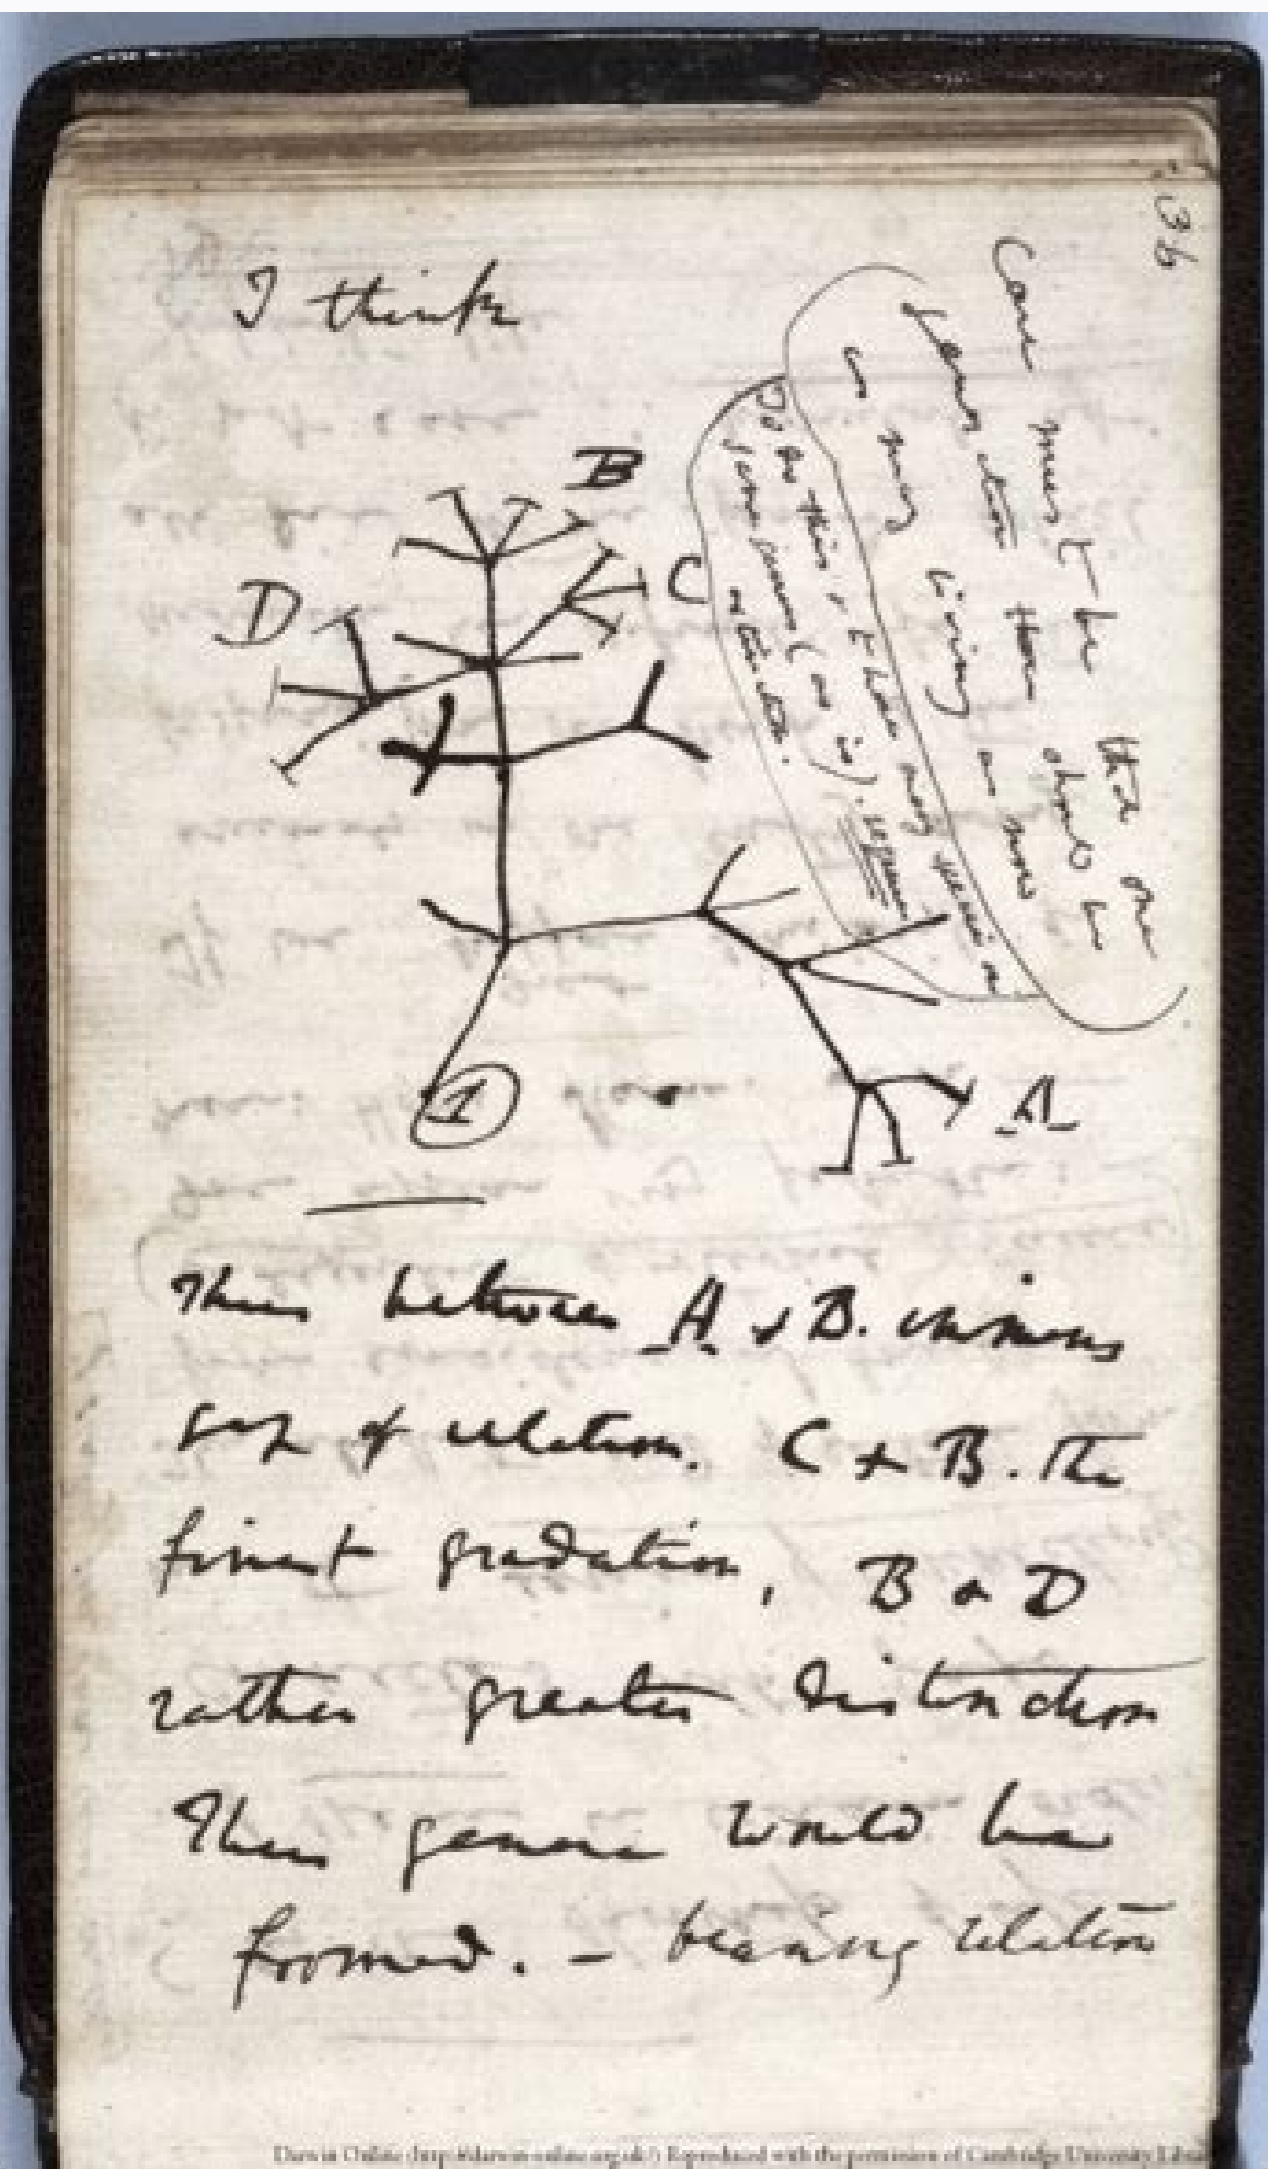 36
I think
Case must be that one
generation then should be
as many living as now
To do this & to have many species in
same genus (as is). requires
extinction.
B
C
D
A
1
Thus between A & B. immens
gap of relation. C & B. the
finest gradation, B & D
rather greater distinction
Thus genera would be
formed. — bearing relation
Darwin Online (http://darwin-online.org.uk/) Reproduced with the permission of Cambridge University Libra